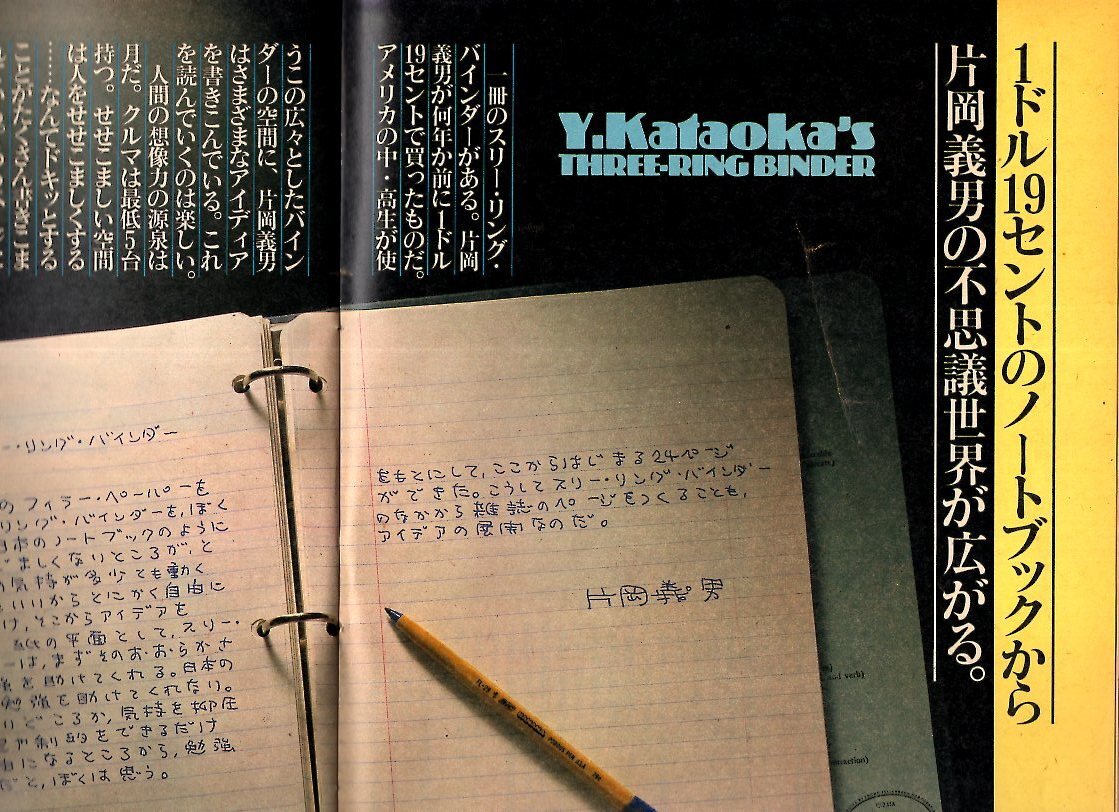 1ドル19セントのノートブックから
片岡義男の不思議世界が広がる。
Y.Kataoka's
THREE-RING BINDER
一冊のスリー・リング・
バインダーがある。片岡
義男が何年か前に1ドル
19セントで買ったものだ。
アメリカの中・高生が使
うこの広々としたバイン
ダーの空間に、片岡義男
はさまざまなアイディア
を書きこんでいる。これ
を読んでいくのは楽しい。
人間の想像力の源泉は
月だ。クルマは最低5台
持つ。せせこましい空間
は人をせせこましくする
……なんてドキッとする
ことがたくさん書きこま
ー・リング・バインダー
のフィラー・ペーパーを
リング・バインダーを,ぼく
日本のノートブックのように
ましくないところが,と
気持が多少ても動く
いいからとにかく自由に
け,そこからアイデアを
の平面として,スリー・
ーは,まずそのおおらかさ
を助けてくれる。日本の
勉強を助けてくれない。
ころか,気持を抑圧
をできるだけ
になるところから,勉強
だと,ぼくは思う。
をもとにして,ここからはじまる24ページ
ができた。こうしてスリー・リング・バインダー
のなかから雑誌のページをつくることも,
アイデアの展開なのだ。
片岡義男
and verb)